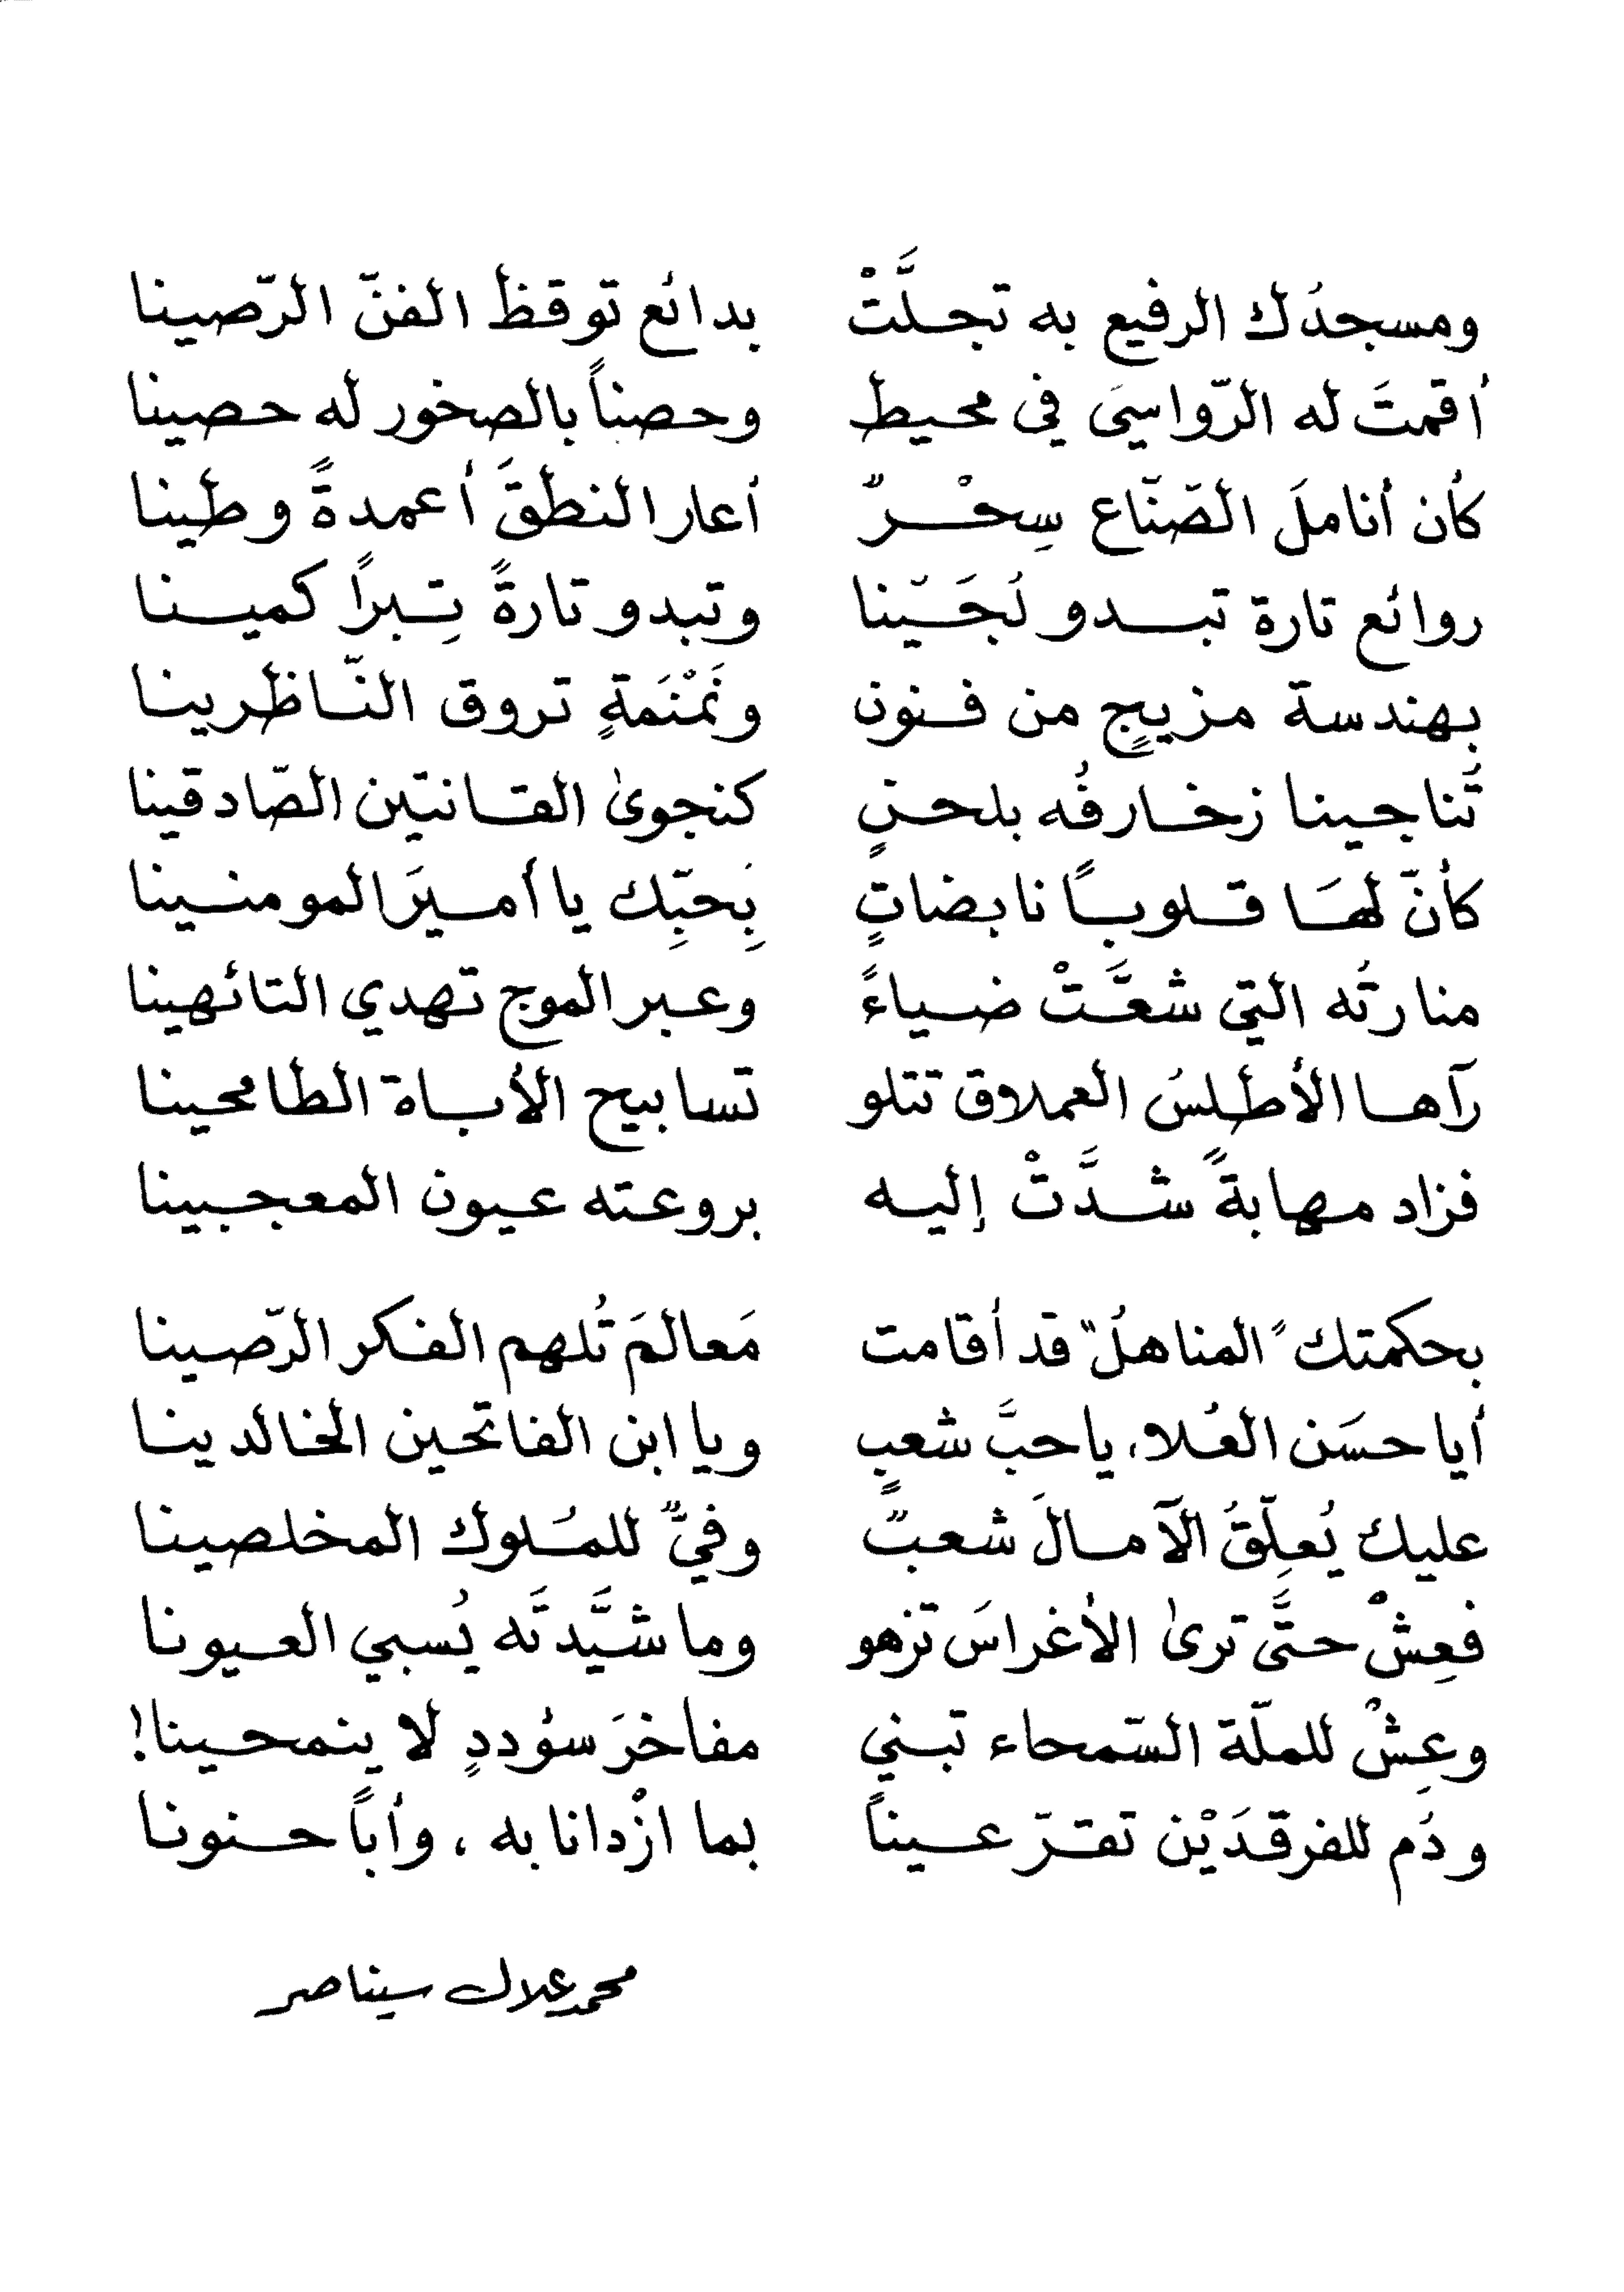 ومسجدُك الرفيع به تجلَّتْ بدائع توقظ الفنّ الرّصينا
أقمتَ له الرّواسيَ في محيط وحصناً بالصخور له حصينا
كأن أناملَ الصّنّاع سِحْرٌ أعار النطقَ أعمدةً وطينا
روائع تارة تبدو لُجَيْنا وتبدو تارةً تِبراً كمينا
بهندسة مزيجٍ من فنون ونَمْنَمَةٍ تروق النّاظرينا
تُناجينا زخارفُه بلحنٍ كنجوىٰ القانتين الصّادقينا
كأنّ لهَا قلوباً نابضاتٍ بِحبِّك يا أميرَ المومنينا
منارتُه التي شعَّتْ ضياءً وعبر الموج تهدي التائهينا
رآها الأطلسُ العملاق تتلو تسابيح الأباة الطامحينا
فزاد مهابةً شدَّتْ إليه بروعته عيون المعجبينا
بحكمتك "المناهلُ" قد أقامت مَعالمَ تُلهم الفكر الرّصينا
أيا حسَن العُلا، يا حبَّ شعبٍ ويا ابن الفاتحين الخالدينا
عليك يُعلِّقُ الآمالَ شعبٌ وفيٌّ للمُلوك المخلصينا
فعِشْ حتَّى ترىٰ الأغراسَ تزهو وما شيَّدتَه يُسبي العيونا
وعِشْ للملّة السّمحاء تبني مفاخرَ سؤددٍ لا ينمحينا!
ودُم للفرقدَيْن تقرّ عيناً بما ازْدانا به ، وأباً حنونا
محمد علال سيناصر